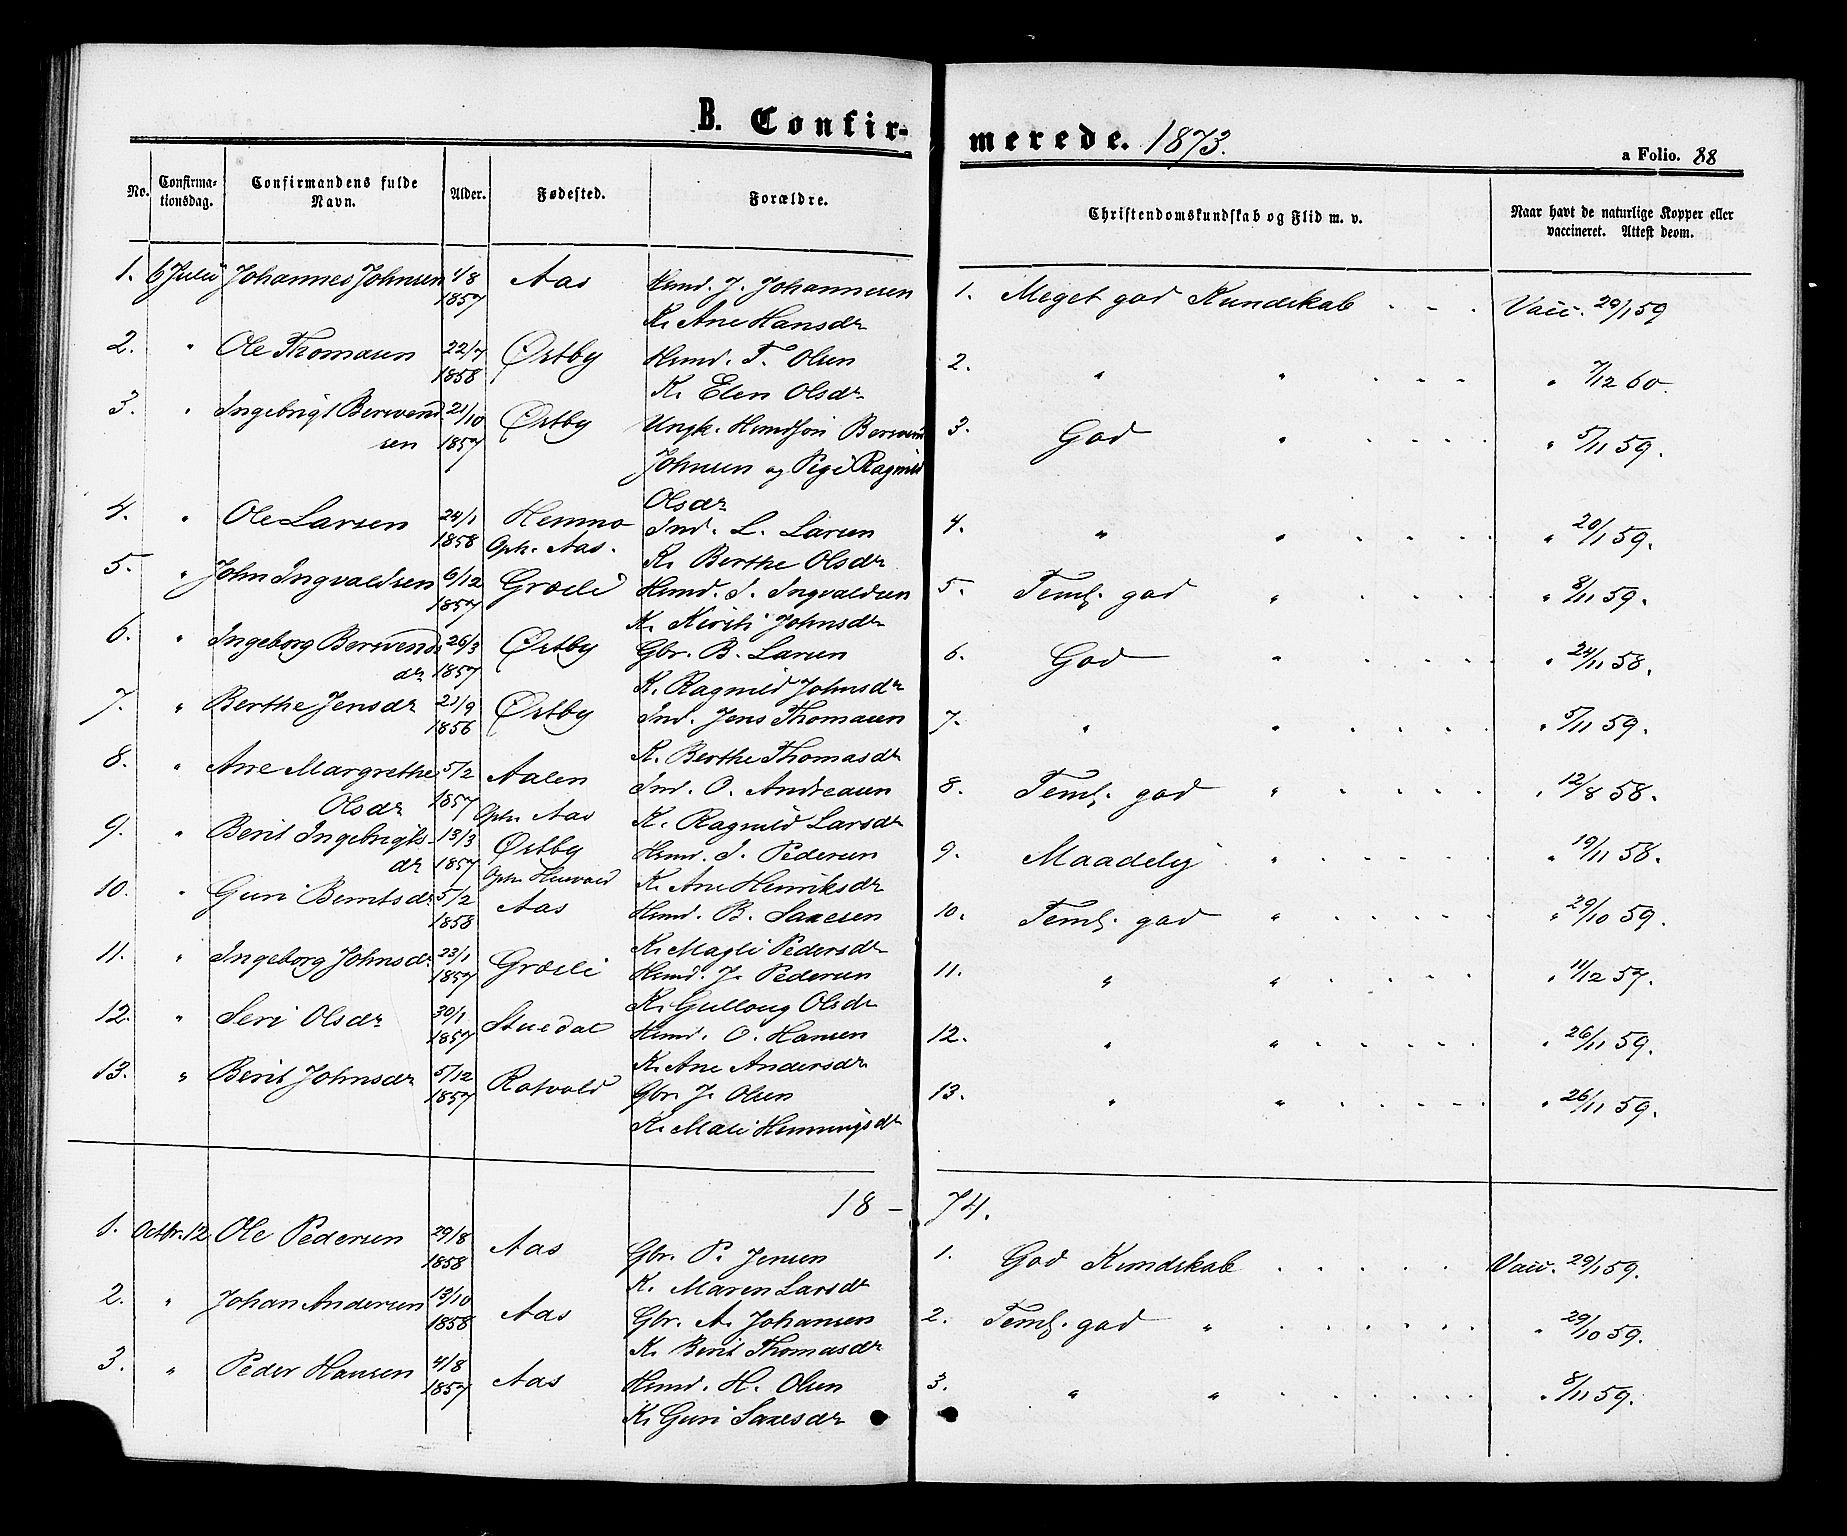 B. Confir-
merede. 1873.
a Folio. 88
No.
Confirma-
tionsdag.
Confirmandens fulde
Navn.
Alder.
Fødested.
Forældre.
Christendomskundskab og Flid m. v.
Naar havt de naturlige Kopper eller
vaccineret. Attest derom.
1. 6 Juli Johannes Johnsen 1/8 Aas Hmd. J. Johannesen
1857 K. Ane Hansdr
2. " Ole Thomasen 22/7 Østby Hmd. T. Olsen
1858 K. Elen Olsdr
3. " Ingebrigt Berwend 21/10 Østby Ungk. Berwend
sen 1857 Johnsen og Pige Ragnild
Olsdr
4. " Ole Larsen 24/1 Hemno Ind. L. Larsen
1858 Oph. Aas. K. Berthe Olsdr
5. " John Ingvaldsen 6/12 Græsli Hmd. I. Ingvaldsen
1857 K. Kirsti Johnsdr
6. " Ingeborg Berwends 26/3 Østby Gbr. B. Larsen
dr 1857 K. Ragnild Johnsdr
7. " Berthe Jensdr 21/9 Østby Ind. Jens Thomasen
1856 K. Berthe Thomasdr
8. " Ane Margrethe 5/2 Aalen Ind. O. Andreasen
Olsdr 1857 Oph. Aas K. Ragnild Larsdr
9. " Berit Ingebrigts- 13/3 Østby Hmd. I. Pedersen
dr 1857 Oph. K. Ane Henriksdr
10. " Guri Berntsdr 5/2 Aas Hmd. B. Saxesen
1858 K. Magli Pedersdr
11. " Ingeborg Johnsdr 23/1 Græsli Hmd. J. Pedersen
1857 K. Gulloug Olsdr
12. " Seri Olsdr 30/1 Stuedal Hmd. O. Hansen
1857 K. Ane Andersdr
13. " Berit Johnsdr 5/12 Rotvold Gbr. J. Olsen
1857 K. Mali Henningsdr
1. Meget god Kundskab . - . Vacc. 29/1 59
2. " " . . - - " 7/12 60.
3. God " . . . . " 5/11 59.
4. " " . . . . " 20/1 59.
5. Teml. god " . . . . " 8/11 59.
6. God " . . . . " 24/11 58.
7. " " . . . . " 5/11 59.
8. Teml. god " . . . . " 12/8 58.
9. Maadelig " . . . . " 19/11 58.
10. Teml. god " . . . . " 29/10 59.
11. " " . . . . " 11/12 57.
12. " " . . . . " 26/11 59.
13. " " . . . . " 26/11 59.
18 - 74.
1. Octbr. 12 Ole Pedersen 29/8 Aas Gbr. P. Jensen
1858 K. Maren Larsdt
2. " Johan Andersen 13/10 Aas Gbr. A. Johansen
1858 K. Berit Thomasdr
3. " Peder Hansen 4/8 Aas Hmd. H. Olsen
1857 K. Guri Saxesdr
1. God Kundskab . . . . . Vacc. 29/1 59.
2. Teml. god " . . . . . " 29/10 59.
3. " " . . . . . " 8/11 59.